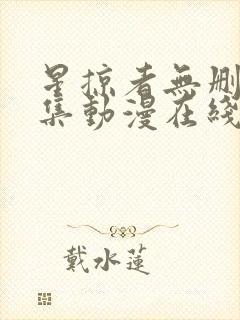 星掠者無刪
集動漫在綫
戴水蓮